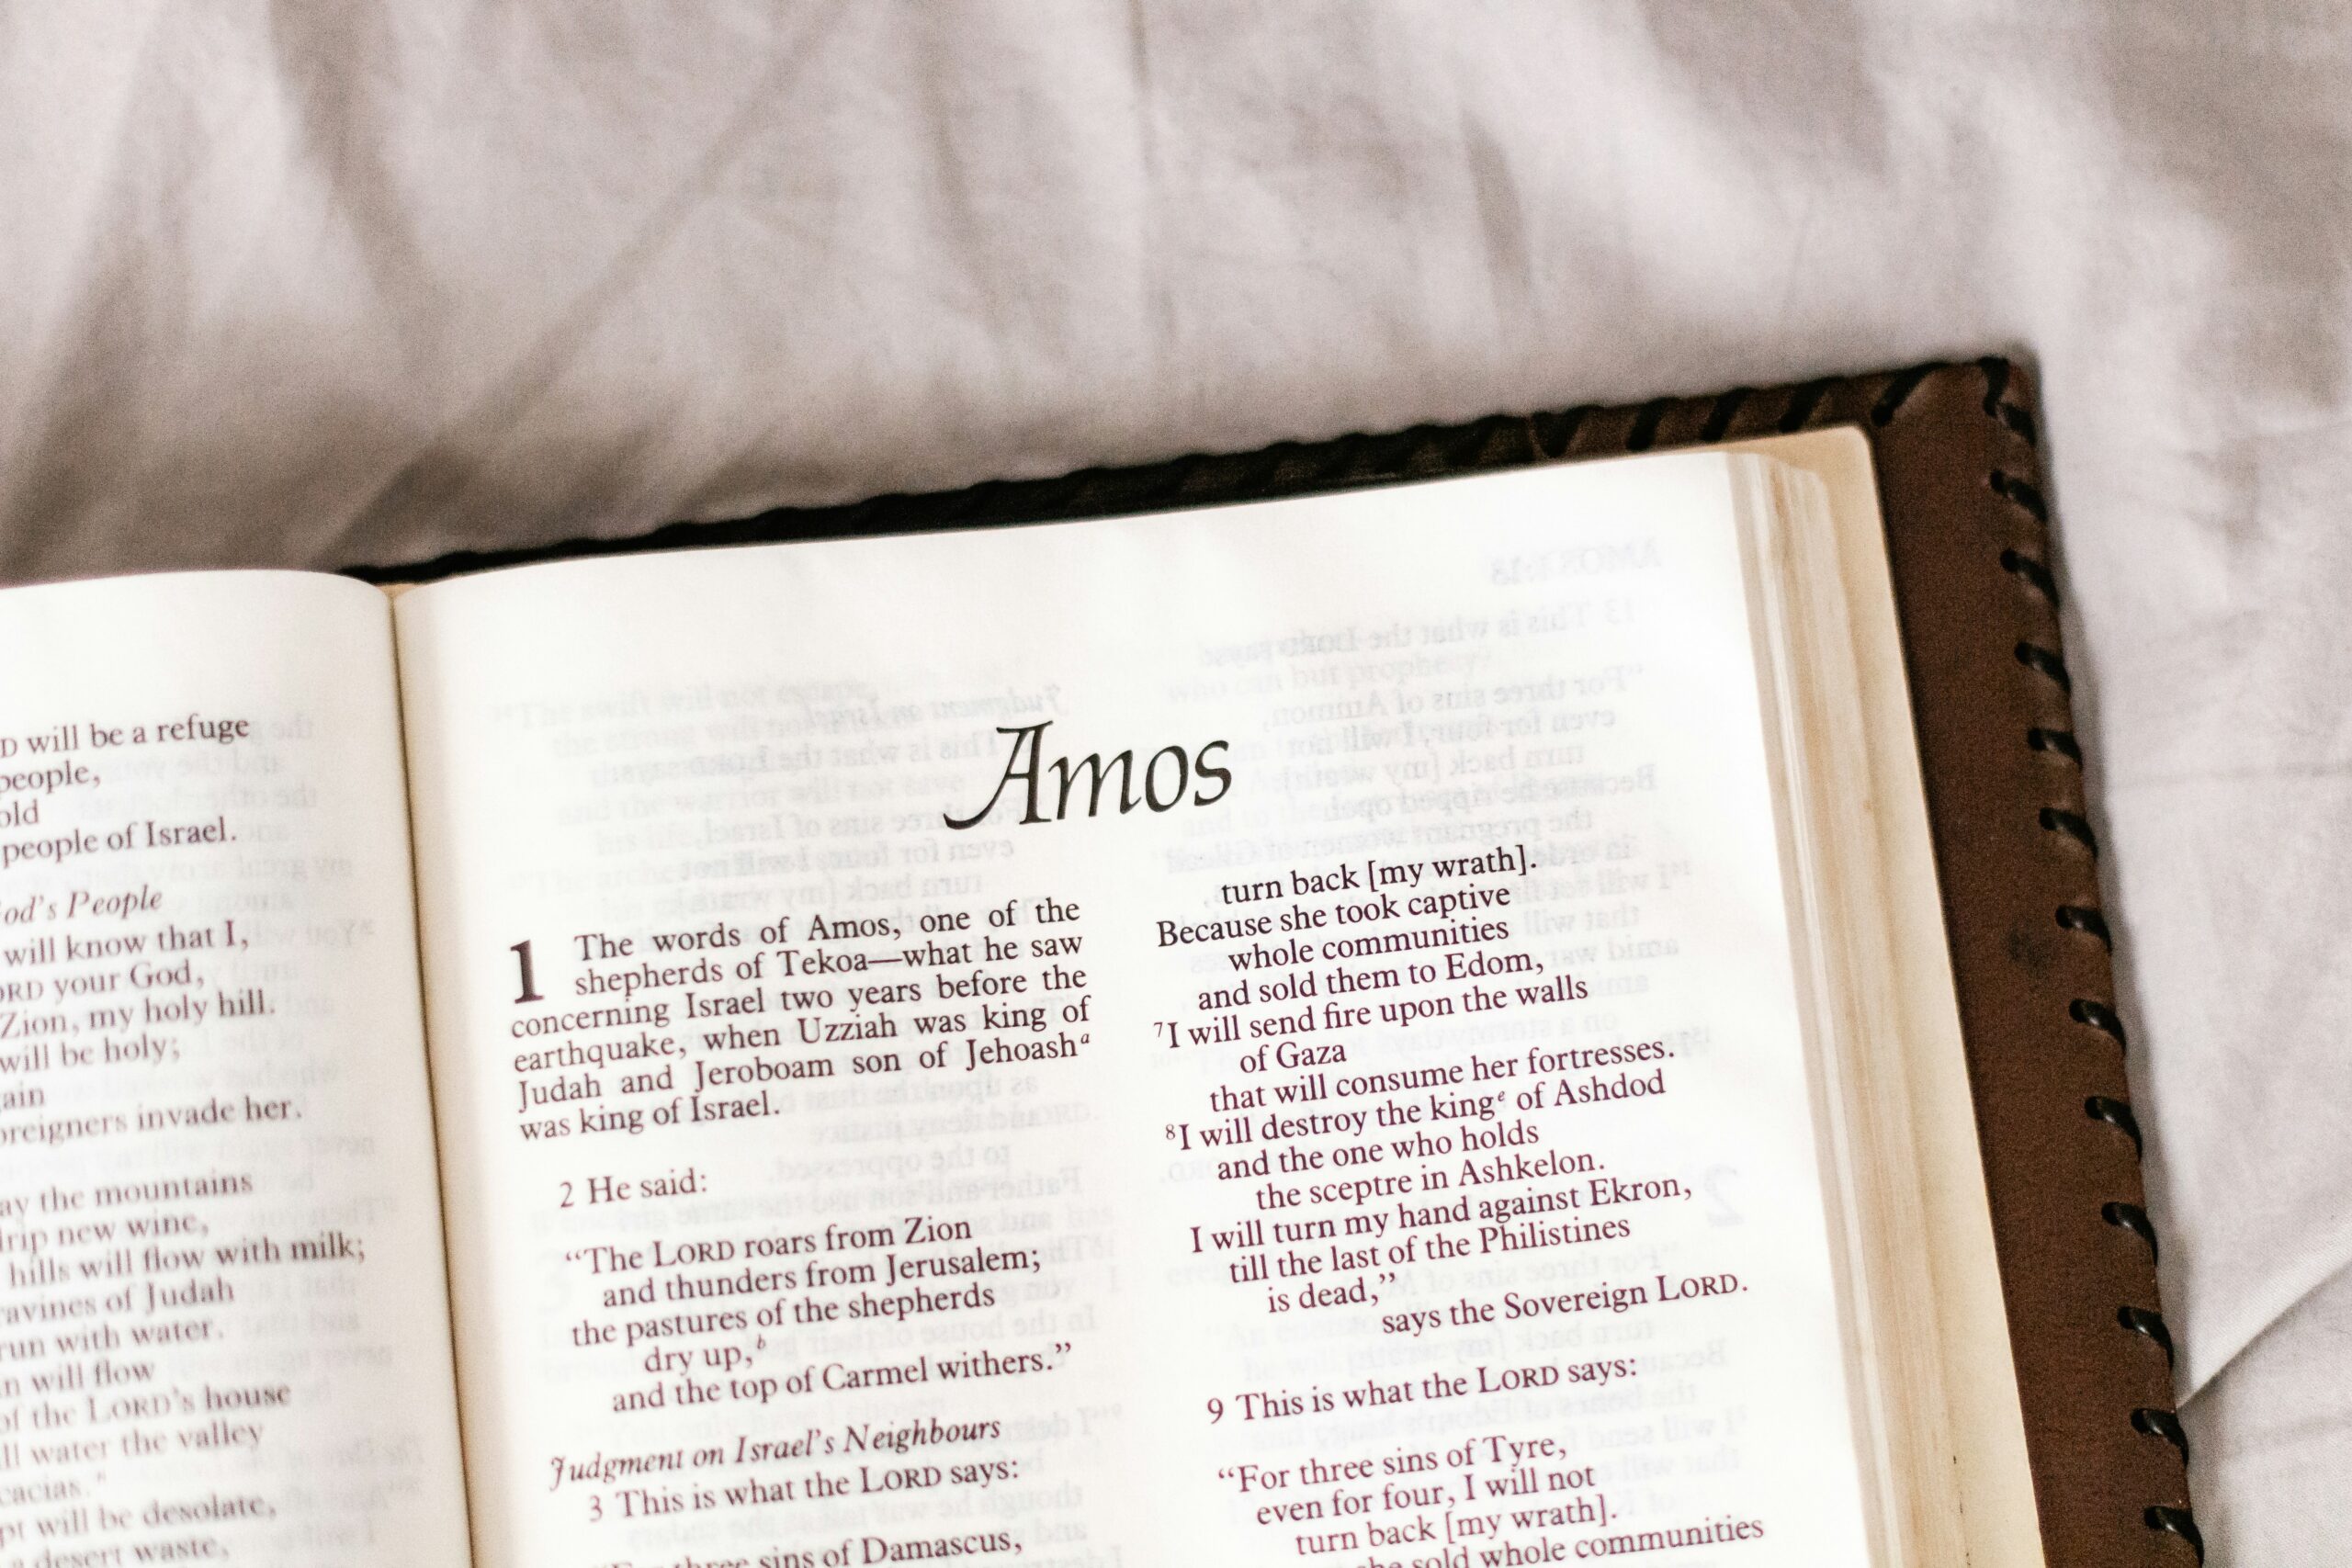 D will be a refuge
people,
old
people of Israel.
God's People
will know that I,
ORD your God,
Zion, my holy hill.
will be holy;
ain
oreigners invade her.
ay the mountains
drip new wine,
hills will flow with milk;
ravines of Judah
run with water.
n will flow
of the LORD's house
ll water the valley
cacias."
pt will be desolate,
a desert waste,
Amos
1 The words of Amos, one of the
shepherds of Tekoa—what he saw
concerning Israel two years before the
earthquake, when Uzziah was king of
Judah and Jeroboam son of Jehoash a
was king of Israel.
2 He said:
“The LORD roars from Zion
and thunders from Jerusalem;
the pastures of the shepherds
dry up, b
and the top of Carmel withers.”
Judgment on Israel's Neighbours
3 This is what the LORD says:
“For three sins of Damascus,
turn back [my wrath].
Because she took captive
whole communities
and sold them to Edom,
7 I will send fire upon the walls
of Gaza
that will consume her fortresses.
8 I will destroy the king e of Ashdod
and the one who holds
the sceptre in Ashkelon.
I will turn my hand against Ekron,
till the last of the Philistines
is dead,”
says the Sovereign LORD.
9 This is what the LORD says:
“For three sins of Tyre,
even for four, I will not
turn back [my wrath].
she sold whole communities